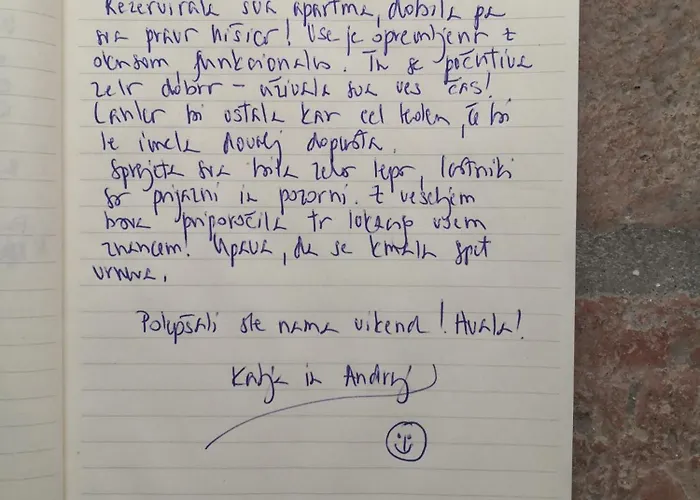 Rezervirala sva apartma, dobila pa
sva pravo hišico! Vse je opremljeno z
okusom funkcionalno. Tu se počutiva
zelo dobro – uživala sva ves čas!
Lahko bi ostala kar cel teden, če bi
le imela dovolj dopusta.
Sprejeta sva bila zelo lepo, lastniki
so prijazni in pozorni. Z veseljem
bova priporočila to lokacijo vsem
znancem! Upava, da se kmalu spet
vrneva.
Polepšali ste nama vikend! Hvala!
Katja in Andrej